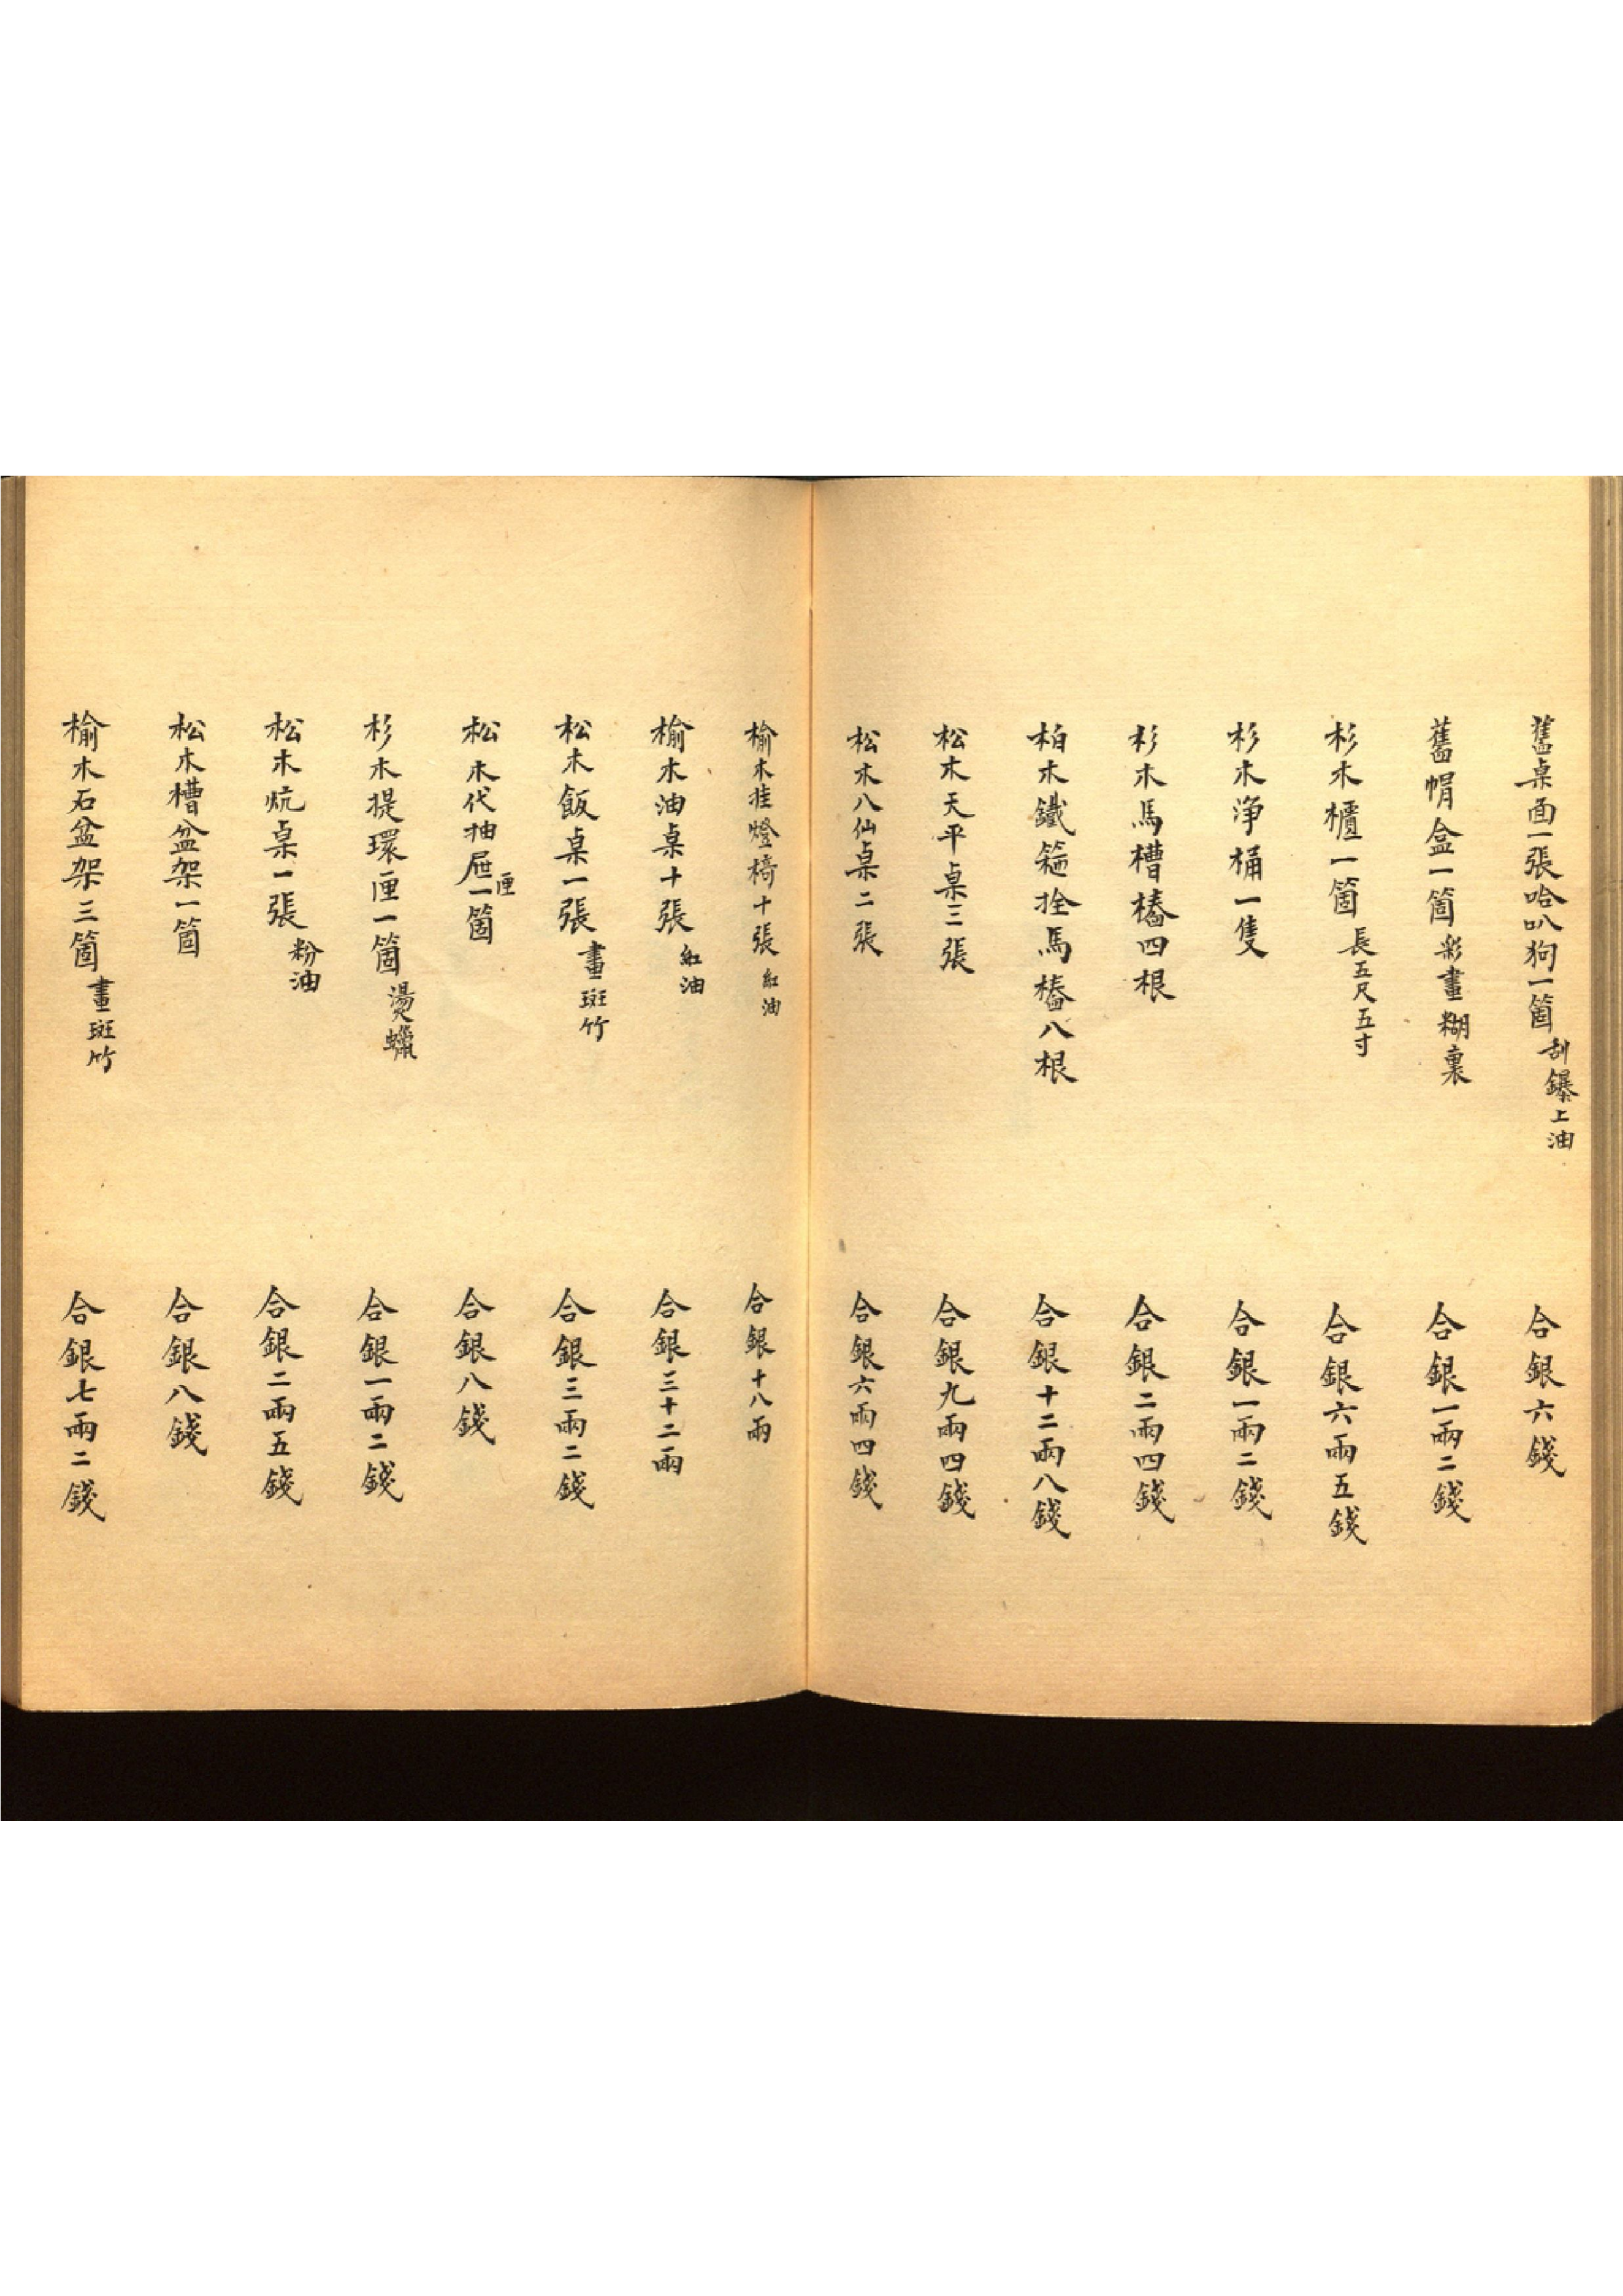 舊桌面一張哈叭狗一箇刮鑤上油 合銀六錢
舊帽盒一箇彩畫糊裏 合銀一兩二錢
杉木櫃一箇長五尺五寸 合銀六兩五錢
杉木淨桶一隻 合銀一兩二錢
杉木馬槽樁四根 合銀二兩四錢
柏木鐵箍拴馬樁八根 合銀十二兩八錢
松木天平桌三張 合銀九兩四錢
松木八仙桌二張 合銀六兩四錢
榆木挂燈椅十張紅油 合銀十八兩
榆木油桌十張紅油 合銀三十二兩
松木飯桌一張畫斑竹 合銀三兩二錢
松木代抽屉匣一箇 合銀八錢
杉木提環匣一箇燙蠟 合銀一兩二錢
松木炕桌一張粉油 合銀二兩五錢
松木槽盆架一箇 合銀八錢
榆木石盆架三箇畫斑竹 合銀七兩二錢